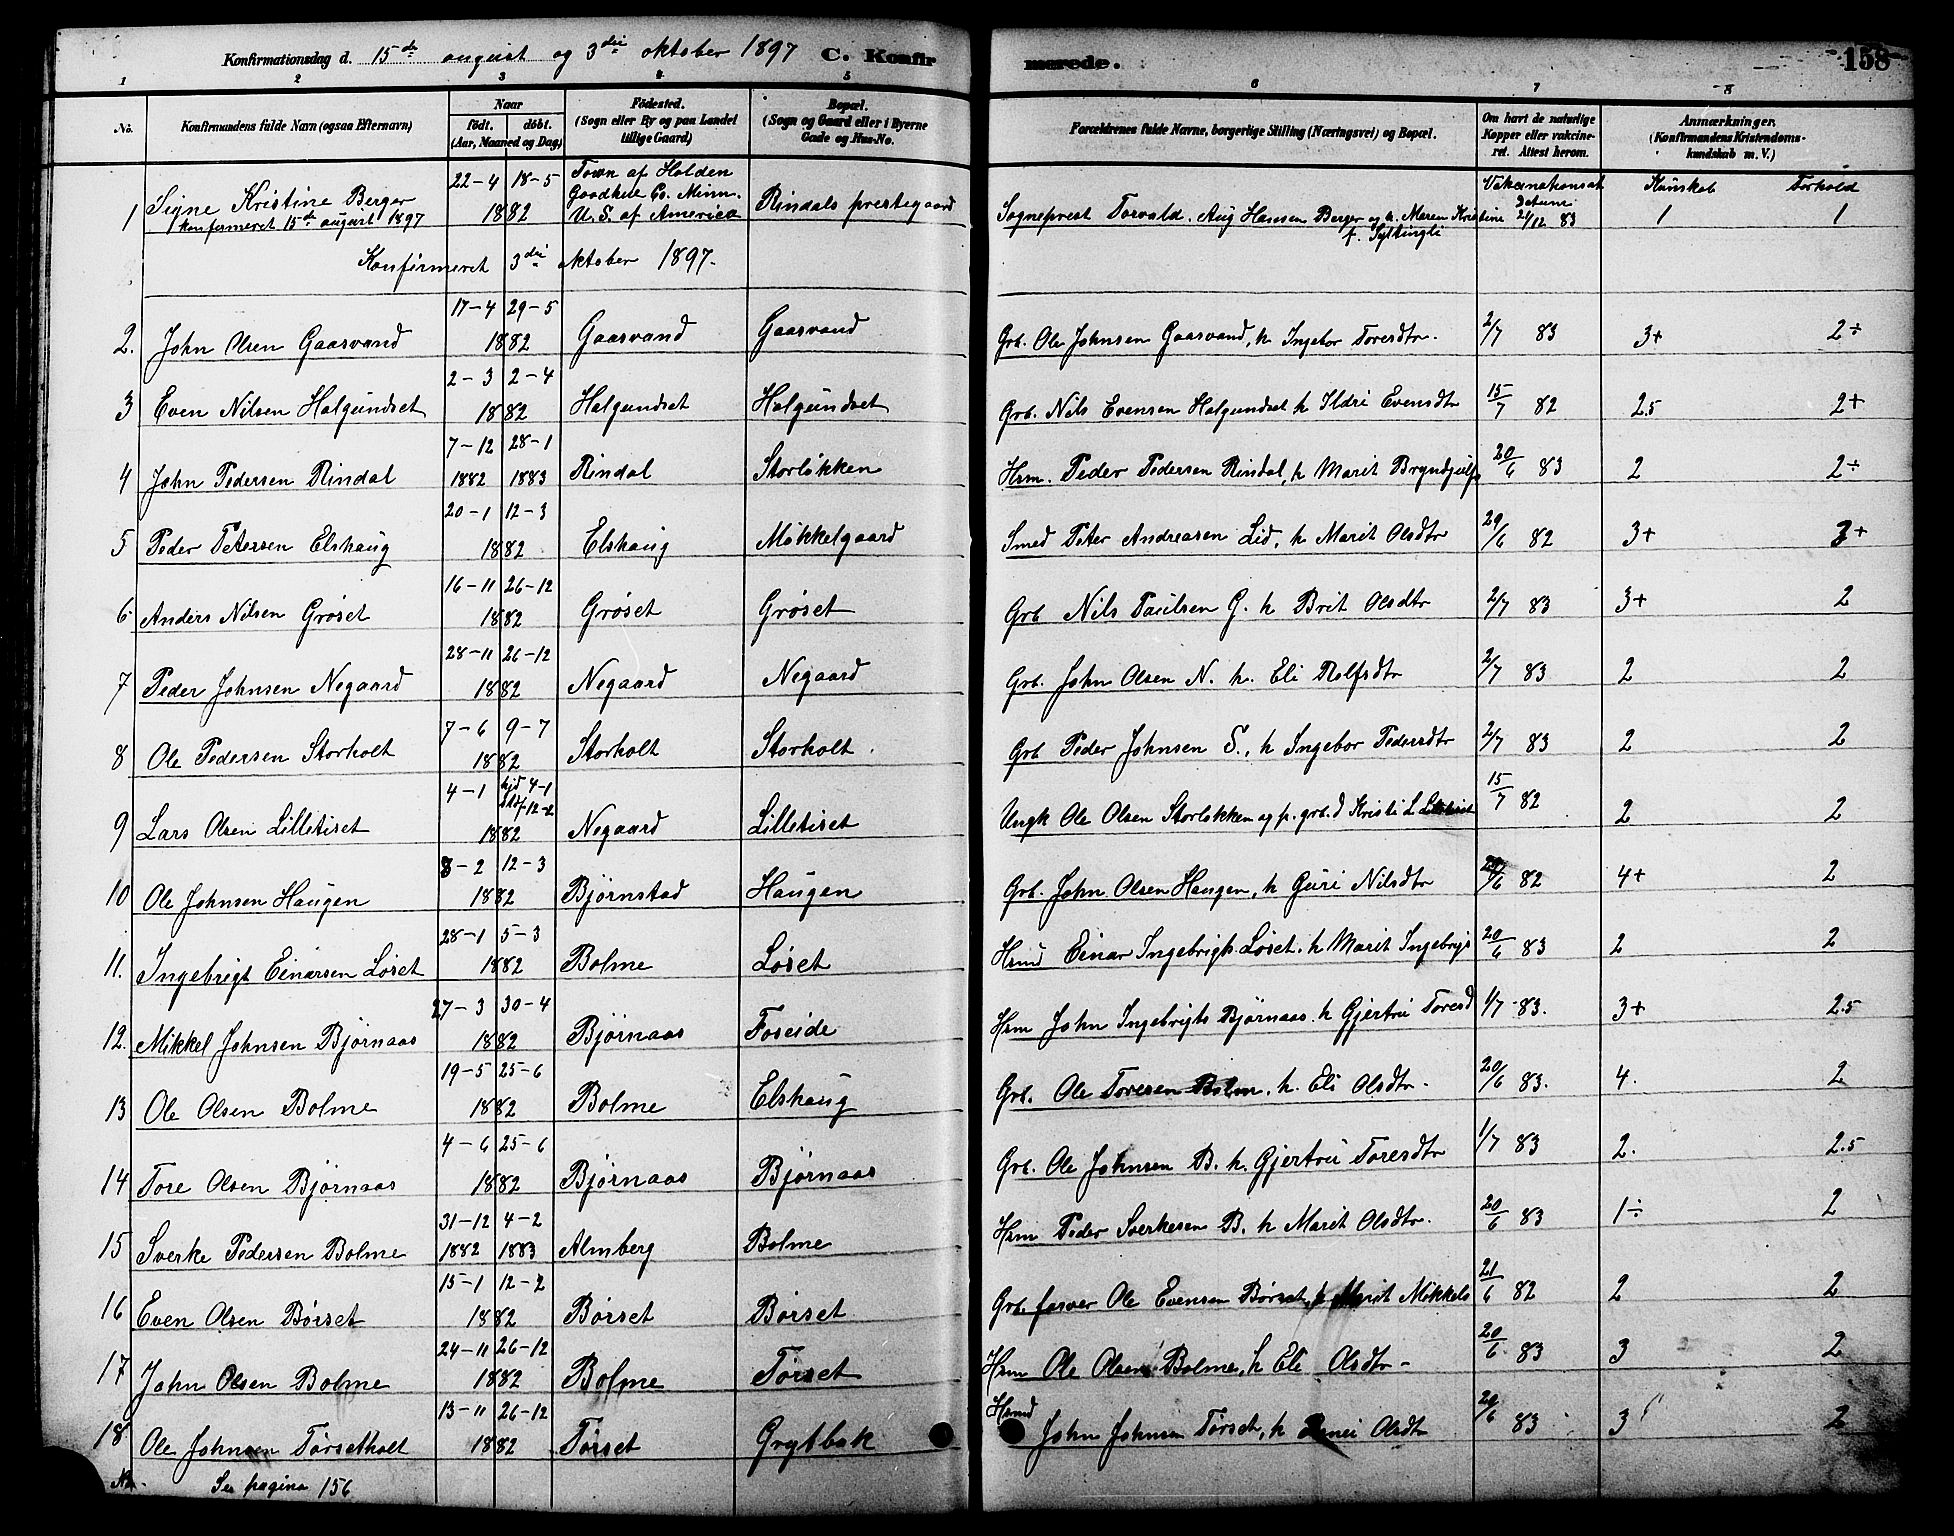 Konfirmationsdag d. 15de august og 3die oktober 1897 C. Konfir merede. 158
1 2 3 4 5 6 7 8
No. Konfirmandens fulde Navn (ogsaa Efternavn) Naar født. døbt. (Aar, Maaned og Dag) Födested. (Sogn eller By og paa Landet tillige Gaard) Bopæl. (Sogn og Gaard eller i Byerne Gade og Hus-No. Forældrenes fulde Navne, borgerlige Stilling (Næringsvei) og Bopæl. Om havt de naturlige Kopper eller vakcineret. Attest herom. Anmærkninger. (Konfirmandens Kristendomskundskab m. V.)
Vakcinationsat Datum: Kunskab Forhold
1 Signe Kristine Berger konfirmeret 15de august 1897 22-4 18-5 1882 Town af Holden Goodhue Co. Minn. U. S. af America Rindals prestegaard Sogneprest Torvald. Aug Hansen Berger og h. Maren Kristine f. Syltingli 21/12 83 1 1
Konfirmeret 3die oktober 1897.
2. John Olsen Gaasvand 17-4 29-5 1882 Gaasvand Gaasvand Grb. Ole Johnsen Gaasvand, h Ingebor Toresdtr. 2/7 83 3+ 2÷
3 Even Nilsen Halgundset 2-3 2-4 1882 Halgundset Halgundset Grb. Nils Evensen Halgundset h Ildri Evensdtr 15/7 82 2.5 2+
4 John Pedersen Rindal 7-12 28-1 1882 1883 Rindal Storløkken Hsm. Peder Pedersen Rindal, h Marit Bryndjulfs 20/6 83 2 2÷
5 Peder Petersen Elshaug 20-1 12-3 1882 Elshaug Møkkelgaard Smed Peter Andreasen Lid, h Marit Olsdtr 29/6 82 3+ 2+
6 Anders Nilsen Grøset 16-11 26-12 1882 Grøset Grøset Grb Nils Paulsen G. h Brit Olsdtr 2/7 83 3+ 2
7 Peder Johnsen Negaard 28-11 26-12 1882 Negaard Negaard Grb. John Olsen N. h. Eli Rolfsdtr 2/7 83 2 2
8 Ole Pedersen Storholt 7-6 9-7 1882 Storholt Storholt. Grb Peder Johnsen S., h Ingebor Pedersdtr 2/7 83 2 2
9 Lars Olsen Lilletiset 4-1 hjd 4-1 12-2 1882 Negaard Lilletiset Ungk Ole Olsen Storløkken og p. grb. d Kristi L Lilletiset 15/7 82 2 2
10 Ole Johnsen Haugen 8-2 12-3 1882 Bjørnstad Haugen Grb. John Olsen Haugen, h Guri Nilsdtr /6 82 4+ 2
11. Ingebrigt Einarsen Løset 28-1 5-3 1882 Bolme Løset Hsmd Einar Ingebrigts. Løset. h Marit Ingebrigs 20/6 83 2 2
12. Mikkel Johnsen Bjørnaas 27-3 30-4 1882 Bjørnaas Foseide Hsm John Ingebrigts Bjørnaas. h Gjertru Toresd 1/7 83. 3+ 2.5
13 Ole Olsen Bolme 19-5 25-6 1882 Bolme Elshaug Grb. Ole Toresen Bolm, h. Eli Olsdtr. 20/6 83. 4. 2
14 Tore Olsen Bjørnaas 4-6 25-6 1882 Bjørnaas Bjørnaas Grb. Ole Johnsen B. h. Gjertru Toresdtr 1/7 83 2. 2.5
15 Sverke Pedersen Bolme 31-12 4-2 1882 1883 Almberg Bolme Hsm Peder Sverkesen B. h Marit Olsdtr. 20/6 83 1÷ 2
16 Even Olsen Børset 15-1 12-2 1882 Børset Børset Grb. farver Ole Evensen Børset, h Marit Mikkels 21/6 82 2 2
17 John Olsen Bolme 24-11 26-12 1882 Bolme Tørset Hsm Ole Olsen Bolme, h Eli Olsdtr- 20/6 83 3 2
18 Ole Johnsen Tørsetholt 13-11 26-12 1882 Tørset Grytbak Hsmd John Johnsen Tørset, h Olsdtr 20/6 83 3 2
Se pagina 156